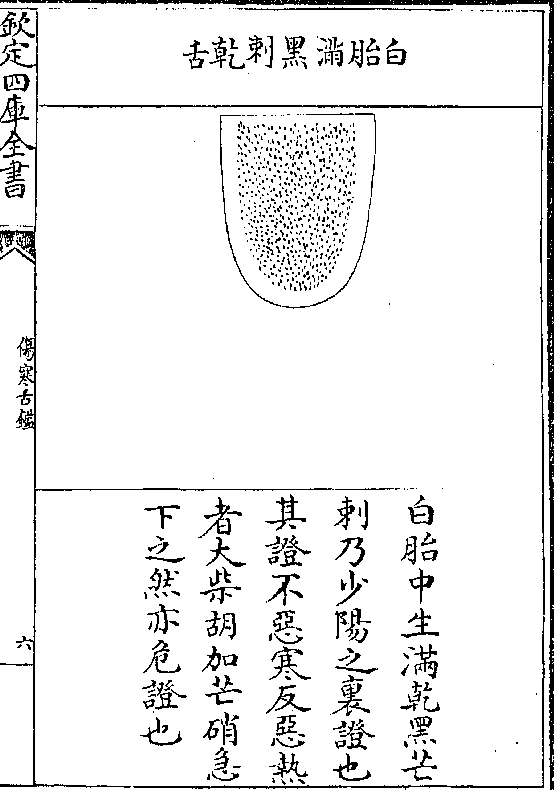 白胎滿黑刺乾舌
白胎中生滿乾黑芒
刺乃少陽之裏證也
其證不惡寒反惡熱
者大柴胡加芒硝急
下之然亦危證也
欽定四庫全書
傷寒舌鑑
六